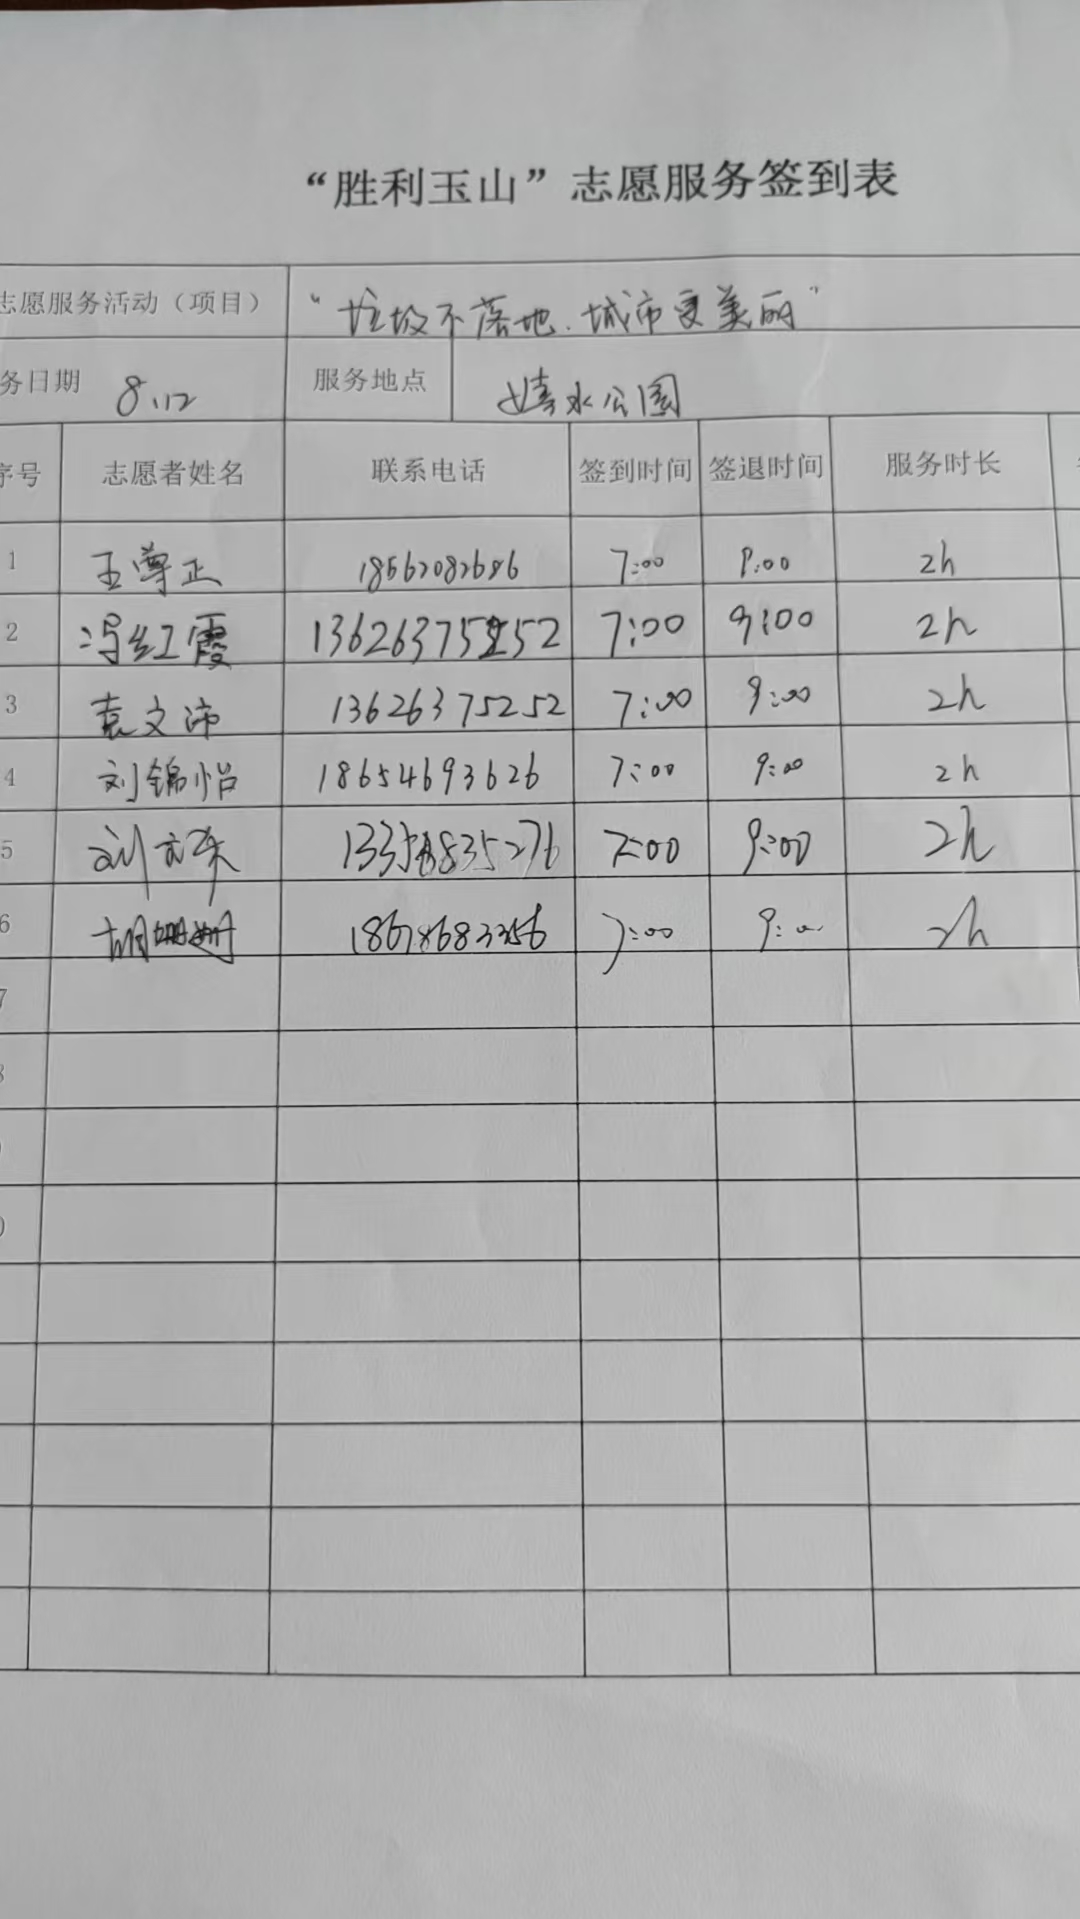 “胜利玉山”志愿服务签到表
志愿服务活动（项目） “垃圾不落地.城市更美丽”
务日期 8.12 服务地点 公园
序号 志愿者姓名 联系电话 签到时间 签退时间 服务时长
1 王尊正 18562082686 7:00 9:00 2h
2 冯红霞 13626375252 7:00 9:00 2h
3 袁文沛 13626375252 7:00 9:00 2h
4 刘锦怡 18654693626 7:00 9:00 2h
5 7:00 9:00 2h
6 胡姗姗 18678683356 7:00 9:00 2h
7